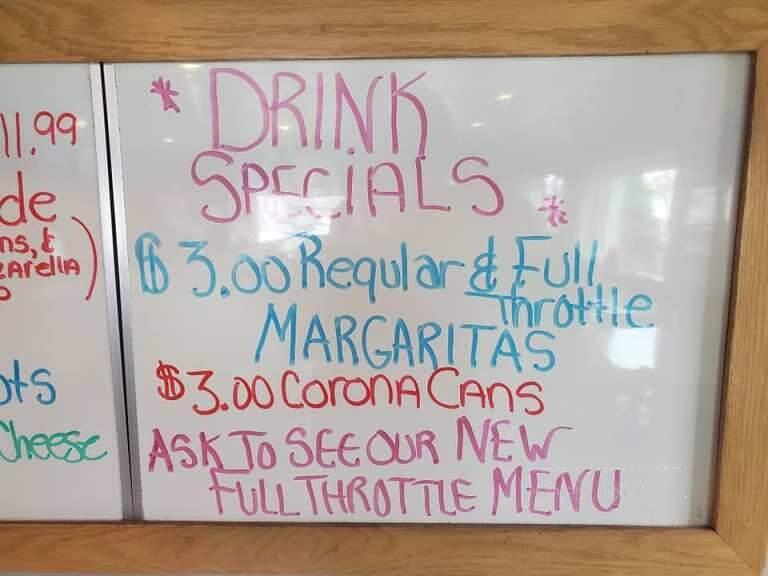 11.99
de
ns, &
zarella
ots
Cheese
* DRINK
SPECIALS *
$3.00 Regular & Full
Throttle
MARGARITAS
$3.00 Corona Cans
ASK TO SEE OUR NEW
FULL THROTTLE MENU